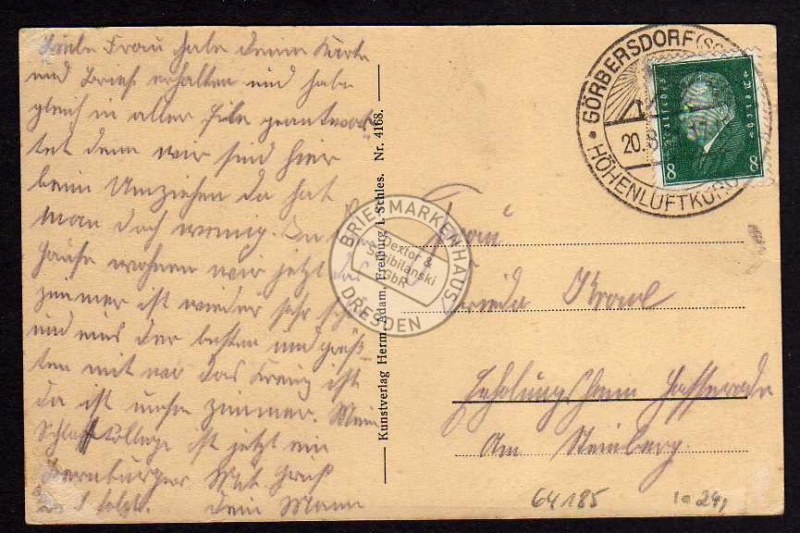 Liebe Frau habe deine Karte
und Brief erhalten und habe
gleich in aller Eile geantwor
tet denn wir sind hier
beim Umziehen da hat
man doch wenig. In
Hause wohnen wir jetzt
zimmer ist wieder sehr schön
und eins der besten und größ
ten mit vor das Kreuz ist
da ist unser zimmer. Mein
Schlaf Kollege ist jetzt ein
Bernburger Mit Gruß
folgt. Dein Mann
Kunstverlag Herm. Adam, Freiburg i. Schles. Nr. 4168.
BRIEFMARKENHAUS
Dextor &
GbR
DRESDEN
GÖRBERSDORF (SC
20.8.
HÖHENLUFTKURO
Deutsches Reich
8 8
Frau
Frieda
Erholungsheim Hasserode
Am Steinberg.
64185